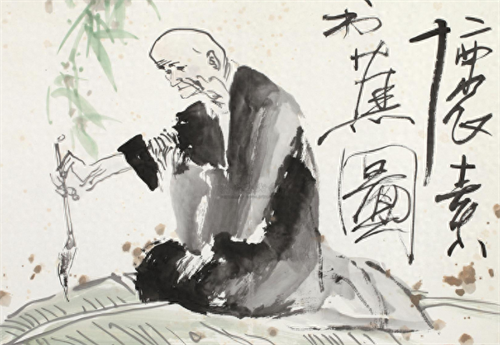 懷素
蕉圖